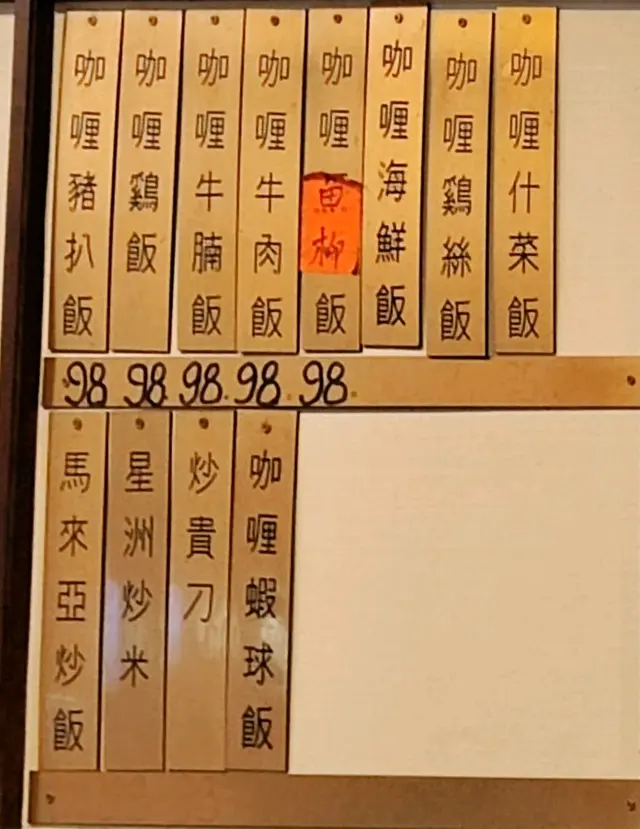 咖喱豬扒飯
咖喱鷄飯
咖喱牛腩飯
咖喱牛肉飯
咖喱魚柳飯
咖喱海鮮飯
咖喱鷄絲飯
咖喱什菜飯
98 98. 98. 98. 98.
馬來亞炒飯
星洲炒米
炒貴刁
咖喱蝦球飯